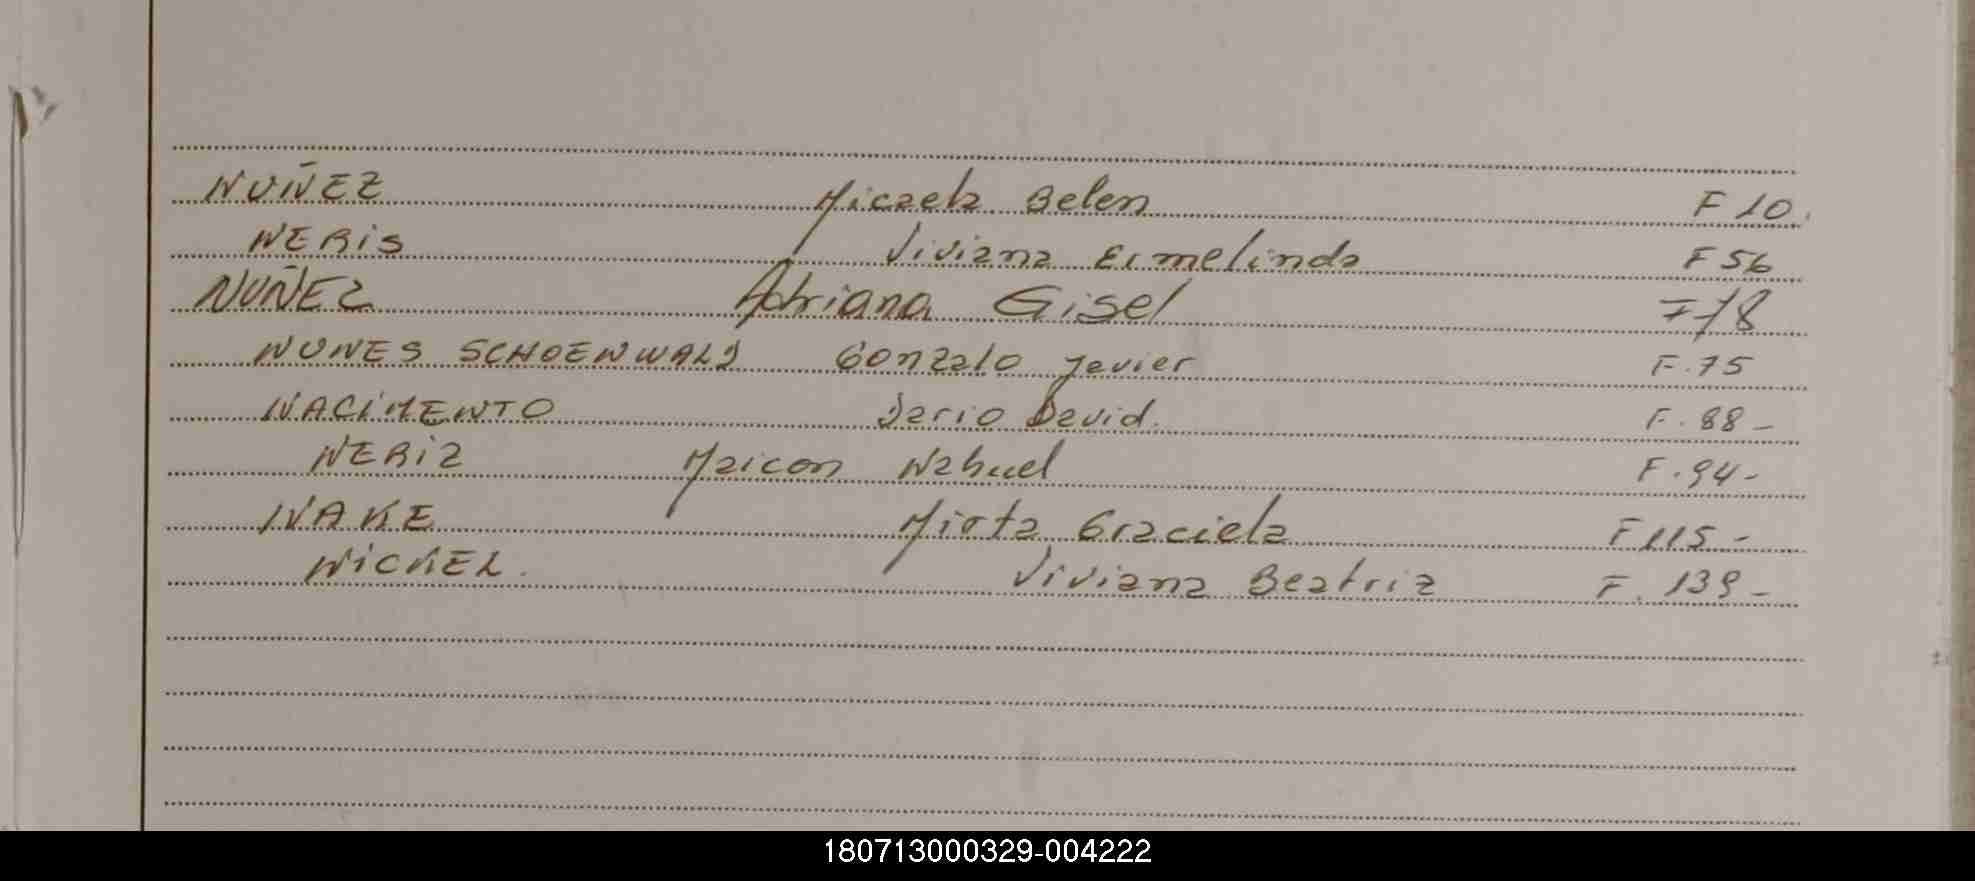 NUÑEZ Micaela Belen F 10.
NERIS Viviana Ermelinda F 56
NUÑEZ Adriana Gisel F 78
NUNES SCHOENWALD Gonzalo Javier F. 75
NACIMENTO Dario David. F. 88-
NERIZ Maicon Nahuel F. 94-
NAKE Mirta Graciela F 115-
NICKEL. Viviana Beatriz F. 139-
180713000329-004222